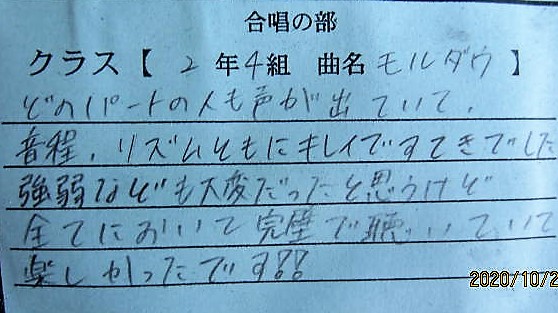 合唱の部
クラス【 2 年4組 曲名 モルダウ 】
どのパートの人も声が出ていて、
音程、リズムともにキレイですてきでした
強弱なども大変だったと思うけど
全てにおいて完璧で聴いていて
楽しかったです!!
2020/10/2